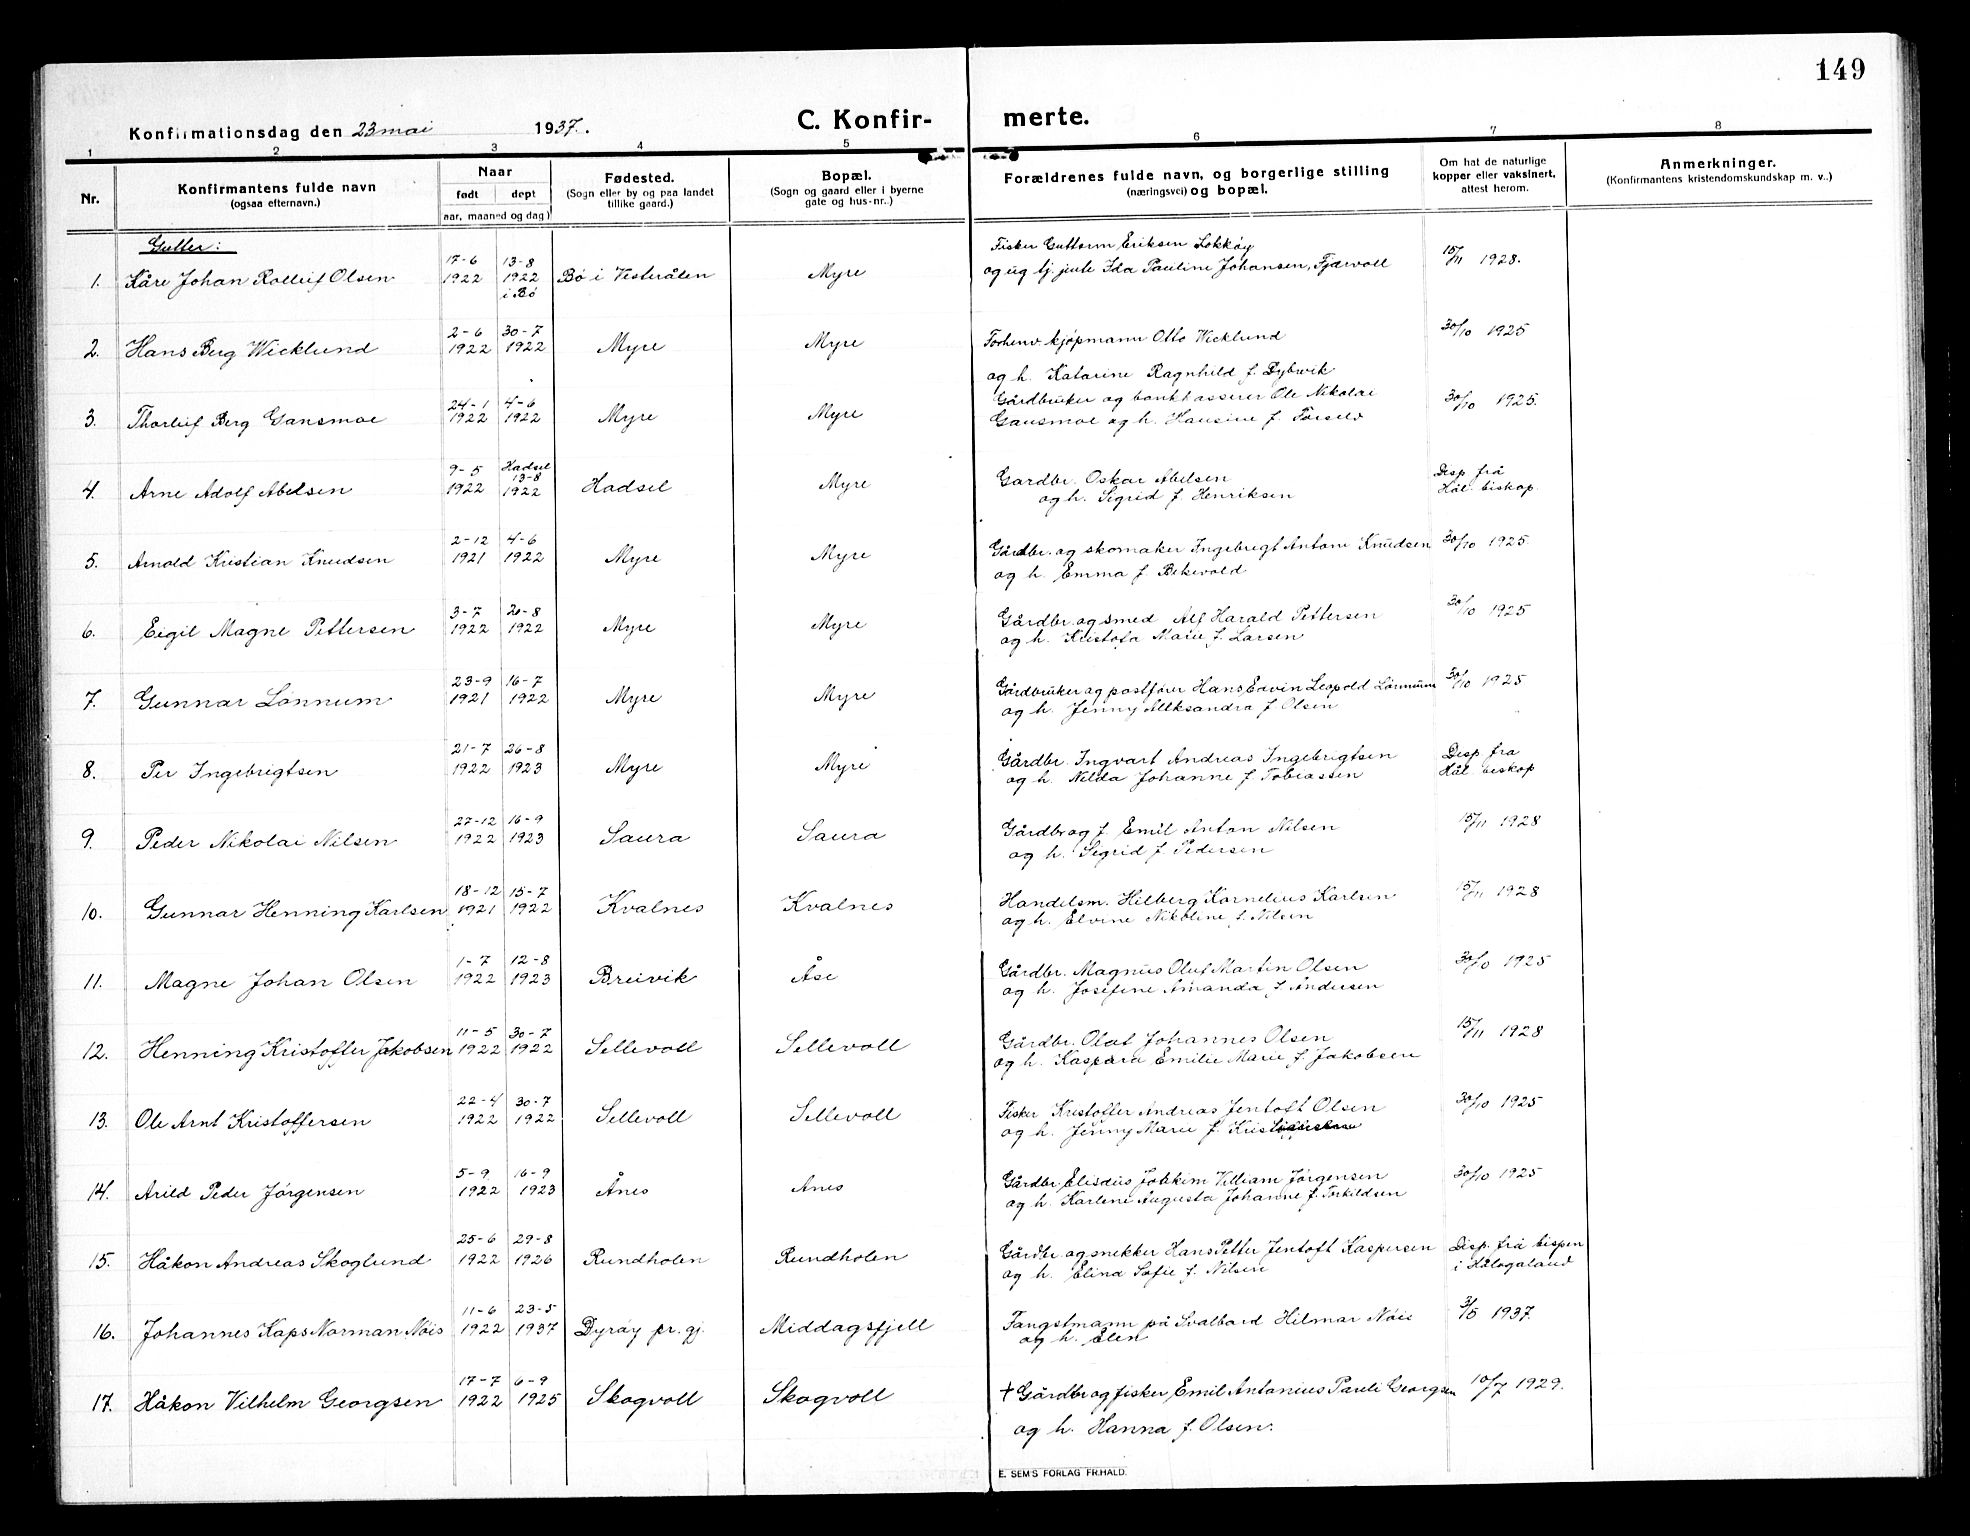 149
Konfirmationsdag den 23 mai 1937. C. Konfir- merte.
1 2 3 4 5 6 7 8
Nr. Konfirmantens fulde navn (ogsaa efternavn.) Naar født dept aar, maaned og dag) Fødested. (Sogn eller by og paa landet tillike gaard.) Bopæl. (Sogn og gaard eller i byerne gate og hus-nr.) Forældrenes fulde navn, og borgerlige stilling (næringsvei) og bopæl. Om hat de naturlige kopper eller vaksinert, attest herom. Anmerkninger. (Konfirmantens kristendomskundskap m. v..)
Gutter:
1. Kåre Johan Rolleif Olsen 17-6 1922 13-8 1922 i Bø Bø i Vesterålen Myre Fisker Guttorm Eriksen
og ug tj. jente Ida Pauline Johansen, Fjærvoll 15/11 1928.
2. Hans Berg Wicklund 2-6 1922 30-7 1922 Myre Myre Forhenv. kjøpmann Otto Wicklund
og h. Katarine Ragnhild f. Dybwik 30/10 1925
3. Thorleif Berg Gansmoe 24-1 1922 4-6 1922 Myre Myre Gårdbruker og bankkasserer Ole Nikolai
Gansmoe og h. Hansine f. 30/10 1925.
4. Arne Adolf Abelsen 9-5 1922 Hadsel 13-8 1922 Hadsel Myre Gardbr. Oskar Abelsen
og h. Sigrid f. Henriksen Disp. frå Hål. biskop.
5. Arnold Kristian Knudsen 2-12 1921 4-6 1922 Myre Myre Gårdbr. og skomaker Ingebrigt Antoni Knudsen
og h. Emma f. Bekevold 30/10 1925
6. Eigil Magne Pettersen 3-7 1922 20-8 1922 Myre Myre Gårdbr. og smed Alf Harald Pettersen
og h. Kristofa Marie f. Larsen 30/10 1925
7. Gunnar Lønnum 23-9 1921 16-7 1922 Myre Myre Gårdbruker og postfører Hans Edvin Leopold Lønnum
og h. Jenny Aleksandra f. Olsen 30/10 1925
8. Per Ingebrigtsen 21-7 1922 26-8 1923 Myre Myre Gårdbr. Ingvart Andreas Ingebrigtsen
og h. Nilda Johanne f. Tobiassen Disp fra Hål. biskop
9. Peder Nikolai Nilsen 27-12 1922 16-9 1923 Saura Saura Gårdbr og f. Emil Anton Nilsen
og h. Sigrid f. Pedersen 15/11 1928
10. Gunnar Henning Karlsen 18-12 1921 15-7 1922 Kvalnes Kvalnes Handelsm. Hilberg Kornelius Karlsen
og h. Elvine Nikoline f. Nilsen 15/11 1928
11. Magne Johan Olsen 1-7 1922 12-8 1923 Breivik Åse Gårdbr. Magnus Oluf Martin Olsen
og h. Josefine Amanda f. Andersen 30/10 1925
12. Henning Kristoffer Jakobsen 11-5 1922 30-7 1922 Sellevoll Sellevoll Gårdbr. Olat Johannes Olsen
og h. Kaspara Emilie Marie f. Jakobsen 15/11 1928
13. Ole Arnt Kristoffersen 22-4 1922 30-7 1922 Sellevoll Sellevoll Fisker Kristoffer Andreas Jentoft Olsen
og h. Jenny Marie f. 30/10 1925
14. Arild Peder Jørgensen 5-9 1922 16-9 1923 Ånes Anes Gårdbr Elisdus Jokkim Villiam Jørgensen
og h. Karlene Augusta Johanne f. Torkildsen 30/10 1925
15. Håkon Andreas Skoglund 25-6 1922 29-8 1926 Rundholen Rundholen Gårdbr og snekker Hans Petter Jentoft Kaspersen
og h. Elind Sofie f. Nilsen Disp. frå bispen i Hålogaland
16. Johannes Kaps Norman Nøis 11-6 1922 23-5 1937 Dyrøy pr. gj. Middagsfjell Fangstmann på Svalbard Hilmar Nøis
og h. Elen 3/5 1937.
17. Håkon Vilhelm Georgsen 17-7 1922 6-9 1925 Skogvoll Skogvoll † Gårdbr og fisker, Emil Antonius Pareli Georgsen
og h. Hanna f. Olsen. 10/7 1929.
E. SEM'S FORLAG FR.HALD.